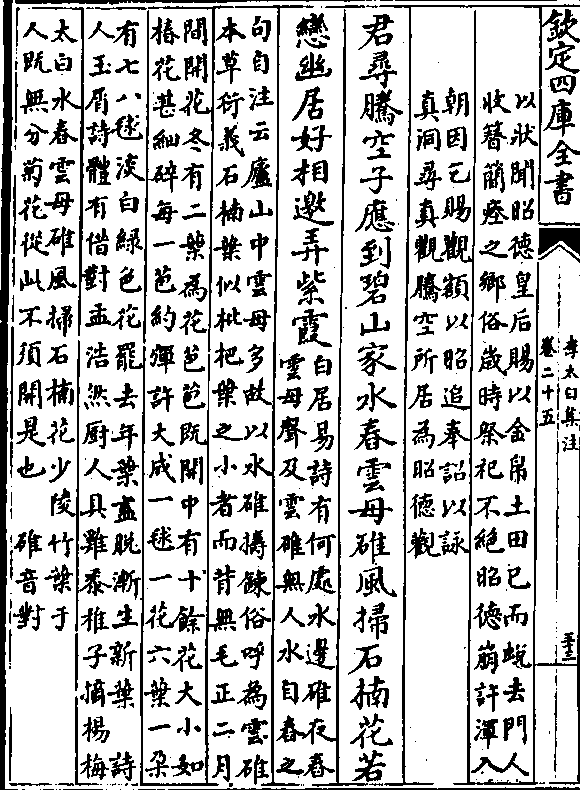 欽定四庫全書
李太白集注
卷二十五
以狀聞昭德皇后賜以金帛土田已而蛻去門人
收簪簡瘞之鄉俗歲時祭祀不絕昭德崩許渾入
朝因乞賜觀額以昭追奉詔以詠
真洞尋真觀騰空所居為昭德觀
君尋騰空子應到碧山家水舂雲母碓風掃石楠花若
戀幽居好相邀弄紫霞
白居易詩有何處水邊碓夜舂
雲母聲及雲碓無人水自舂之
句自注云廬山中雲母多故以水碓擣鍊俗呼為雲碓
本草衍義石楠葉似枇杷葉之小者而背無毛正二月
間開花冬有二葉為花苞苞既開中有十餘花大小如
椿花甚細碎每一苞約彈許大成一毬一花六葉一朶
有七八毬淡白綠色花罷去年葉盡脫漸生新葉 詩
人玉屑詩體有借對孟浩然厨人具雞黍稚子摘楊梅
太白水舂雲母碓風掃石楠花少陵竹葉于
人既無分菊花從此不須開是也 碓音對